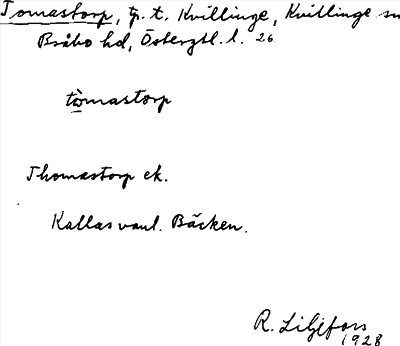 Tomastorp, tp. t. Kvillinge, Kvillinge sn
Bråbo hd, Östergtl. l. 26
tòmastorp
Thomastorp ek.
Kallas vanl. Bäcken.
R. Liljefors
1928